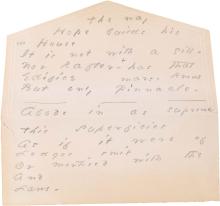 The way
Hope builds his
House
It is not with a sill -
Nor Rafter - has that
Edifice
But only Pinnacle -
Abode in as supreme
This superficies
As if it were of
Ledges smit
Or mortised with the
Laws -